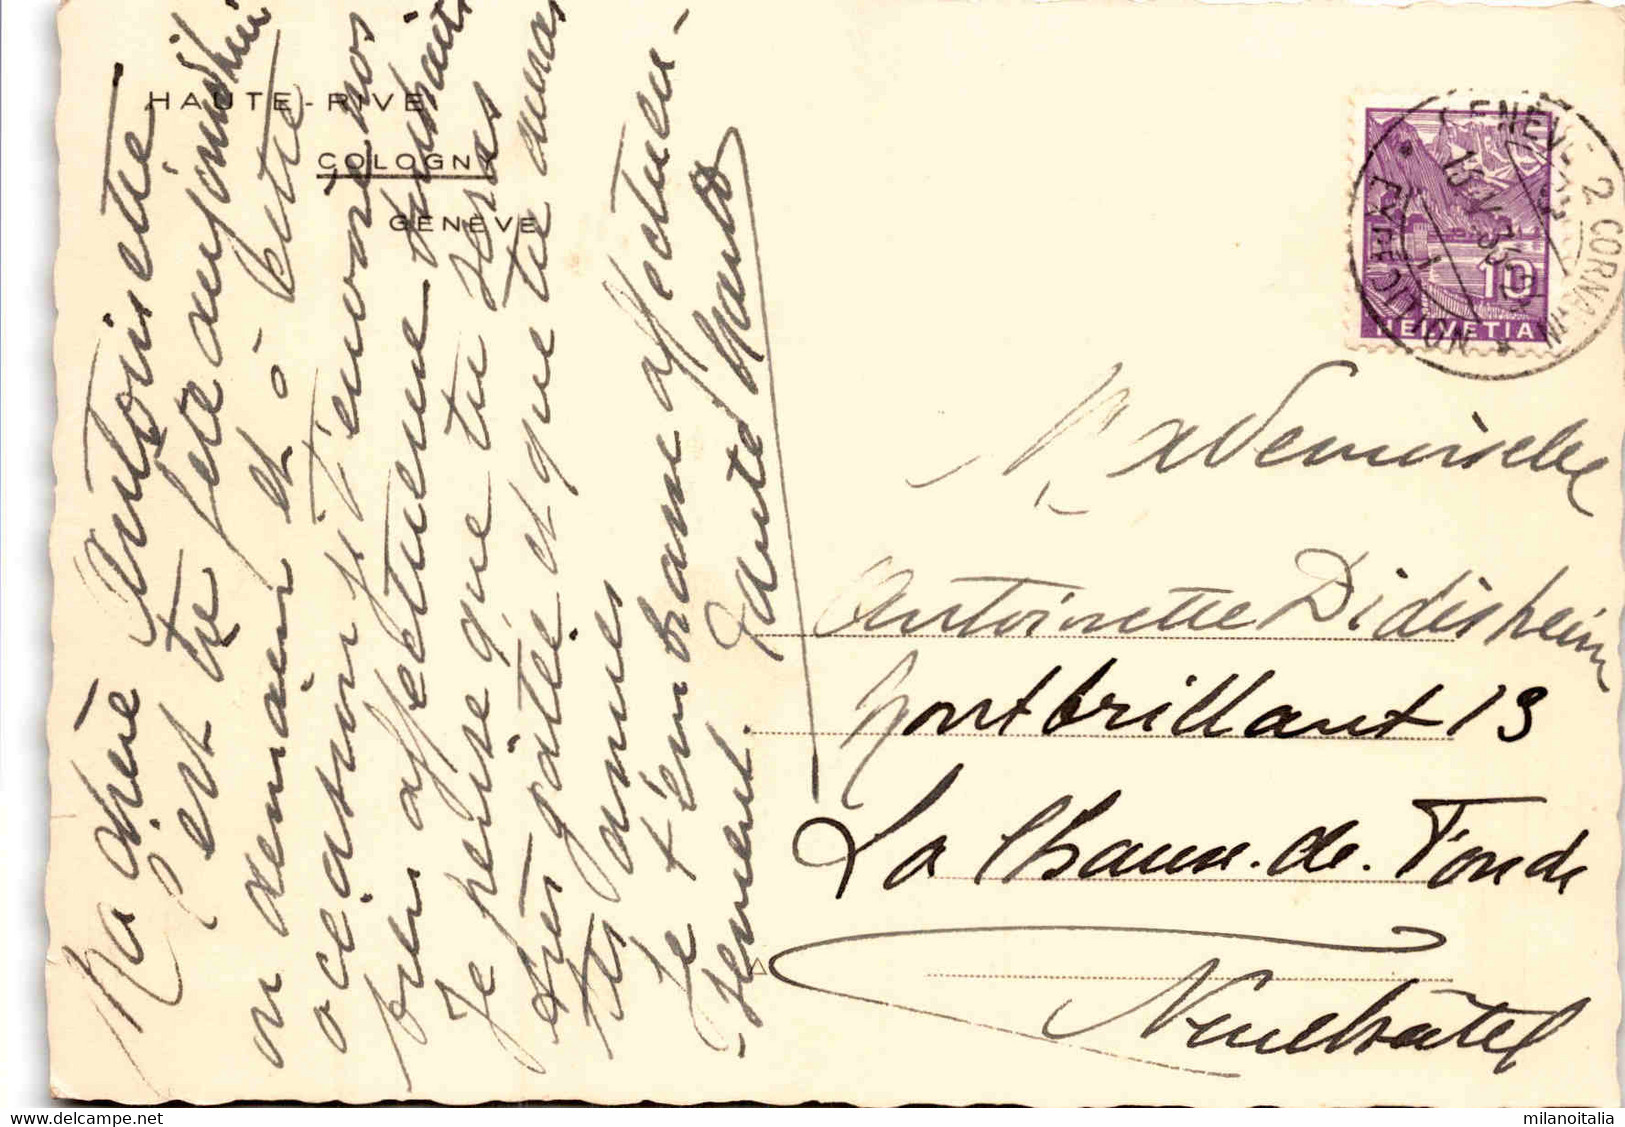 HAUTE-RIVE
COLOGNY
GENÈVE
Ma chère Antoinette
C'est ta fête aujourd'hui
ou demain et à cette
occasion je t'envoie nos
bien affectueuse
Je pense que tu seras
très gâtée et que tu auras
tes amies
Je t'embrasse affectueu-
-sement. Tante
HELVETIA
10
2 CORNAVIN
EXPEDITION
Mademoiselle
Antoinette Didisheim
Montbrillant 13
La Chaux-de-Fonds
Neuchâtel
milanoitalia
delcampe.net